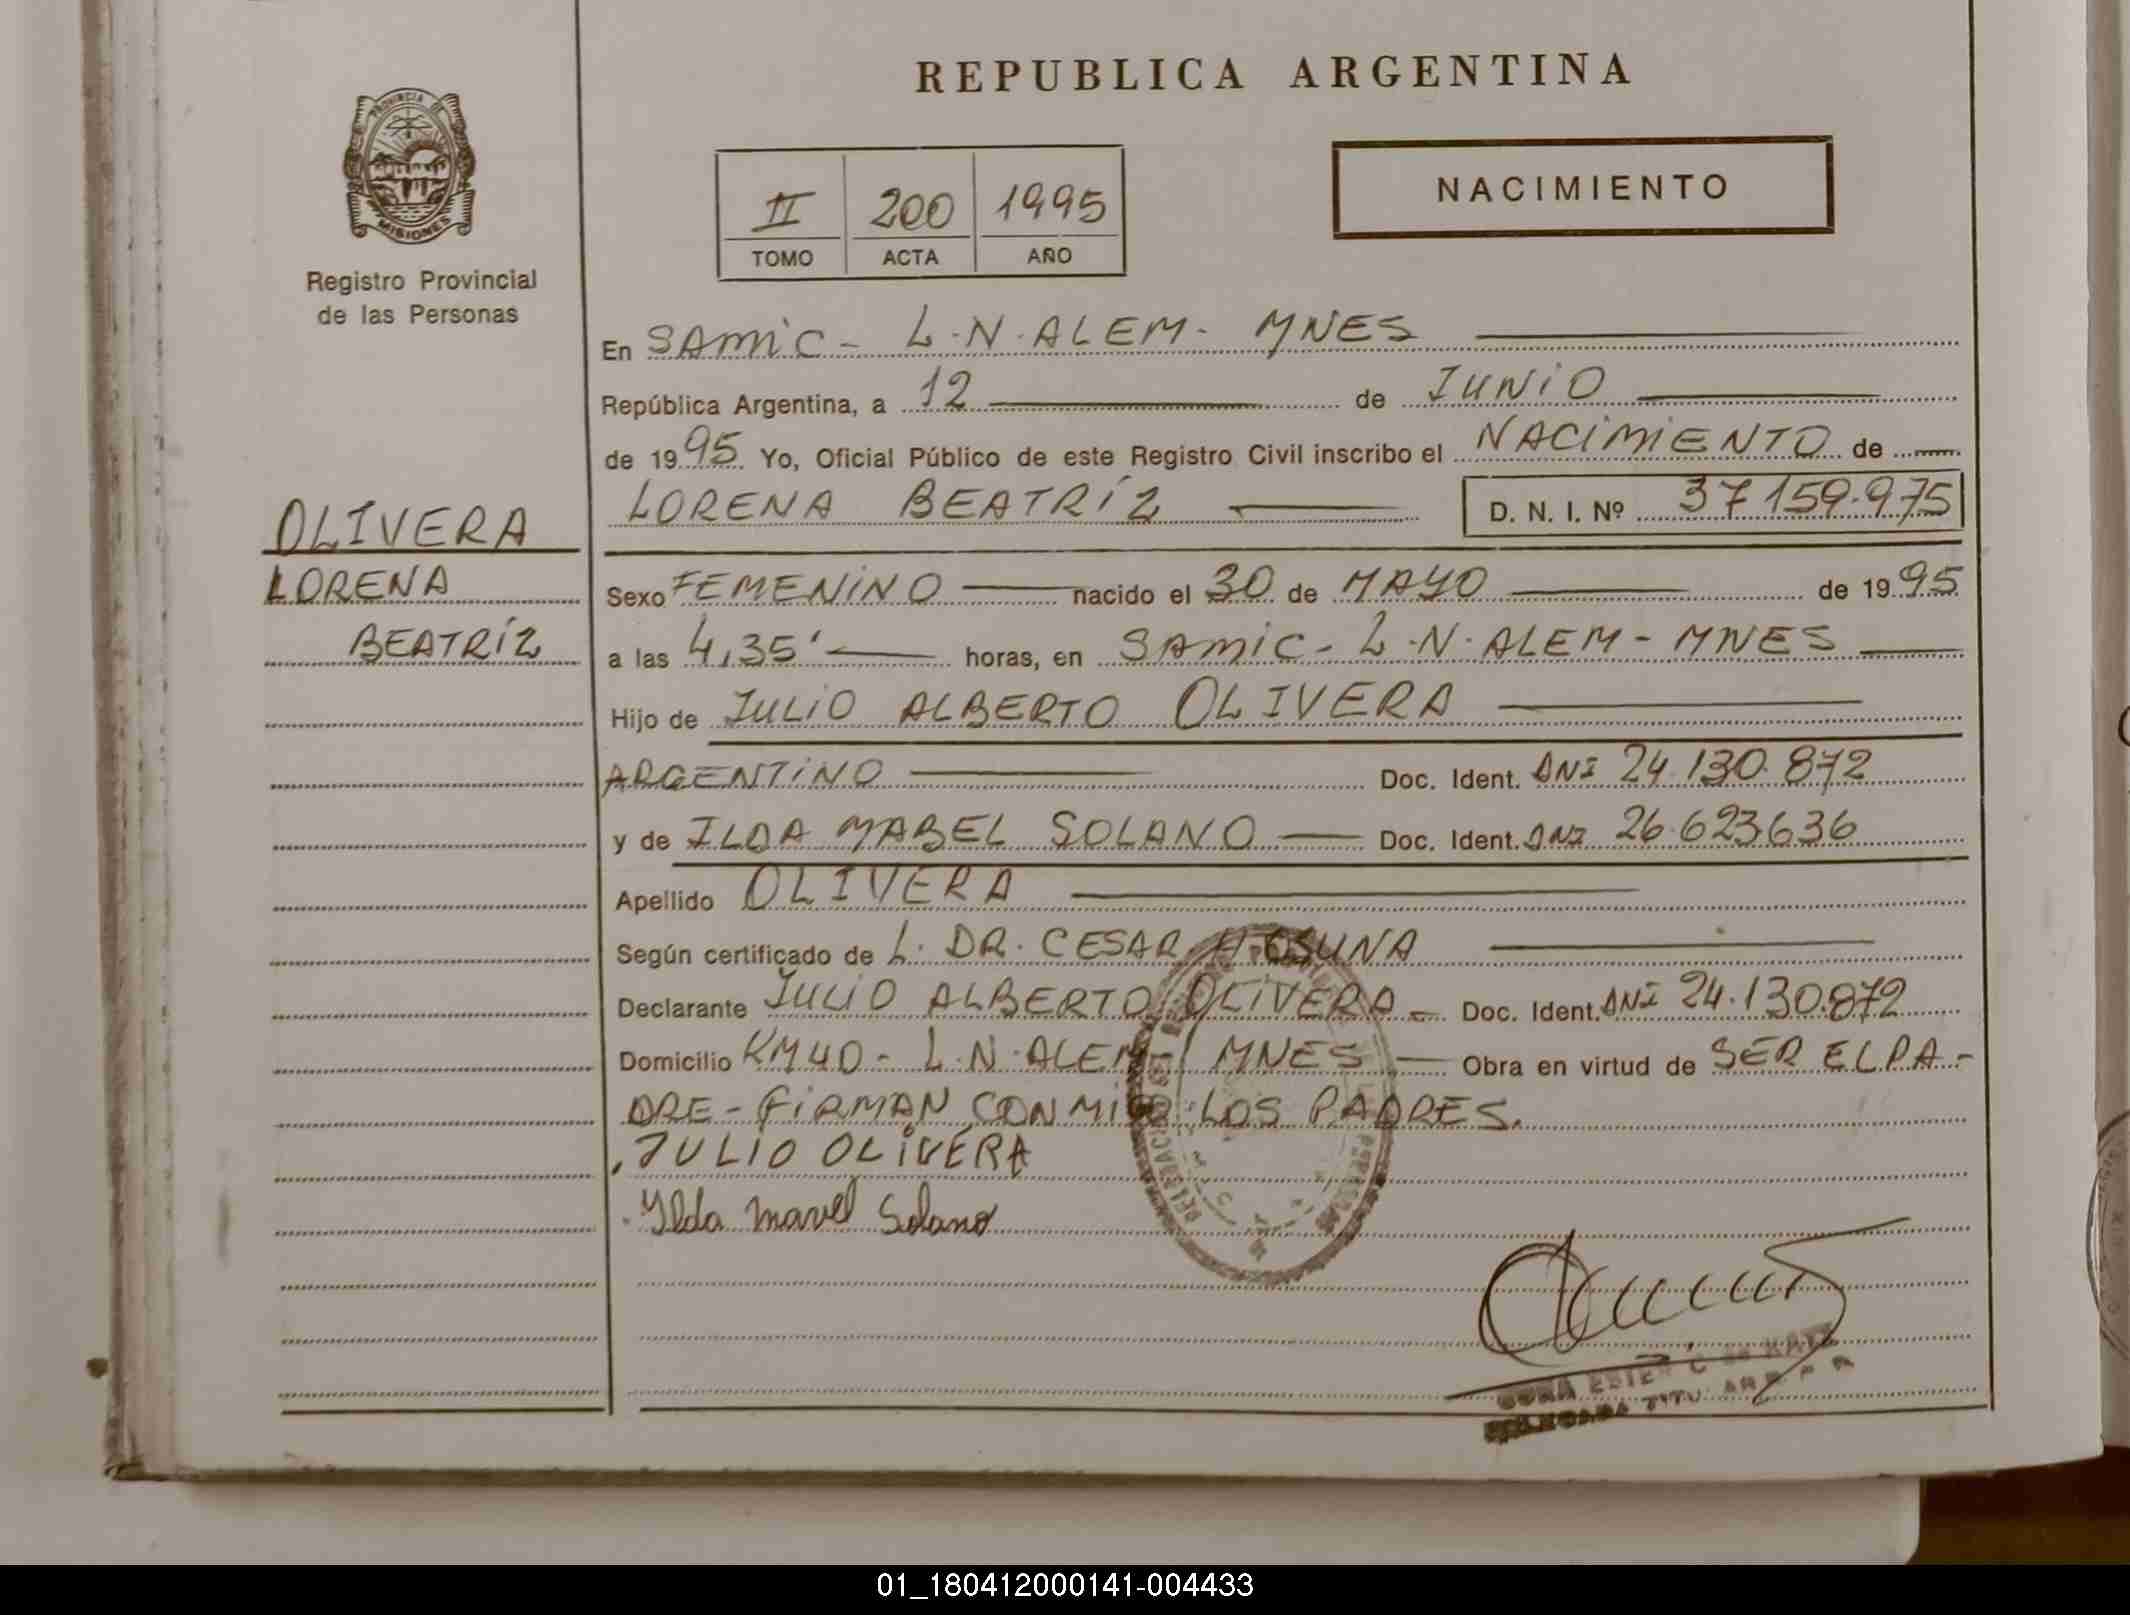 REPUBLICA ARGENTINA
PROVINCIA DE
MISIONES
Registro Provincial
de las Personas
II 200 1995
TOMO ACTA AÑO
NACIMIENTO
En SAMIC - L.N. ALEM - MNES
República Argentina, a 12 de JUNIO
de 1995 Yo, Oficial Público de este Registro Civil inscribo el NACIMIENTO de
LORENA BEATRÍZ D. N. I. Nº 37159.975
OLIVERA
LORENA
BEATRÍZ
Sexo FEMENINO nacido el 30 de MAYO de 1995
a las 4,35' horas, en SAMIC - L.N. ALEM - MNES
Hijo de JULIO ALBERTO OLIVERA
ARGENTINO Doc. Ident. DNI 24.130.872
y de ILDA MABEL SOLANO Doc. Ident. DNI 26.623636
Apellido OLIVERA
Según certificado de L. DR. CESAR OSUNA
Declarante JULIO ALBERTO OLIVERA - Doc. Ident. DNI 24.130.872
Domicilio KM 40 - L.N. ALEM MNES Obra en virtud de SER EL PA-
DRE - FIRMAN CONMIGO LOS PADRES.
JULIO OLIVERA
Ylda Mavel Solano
01_180412000141-004433